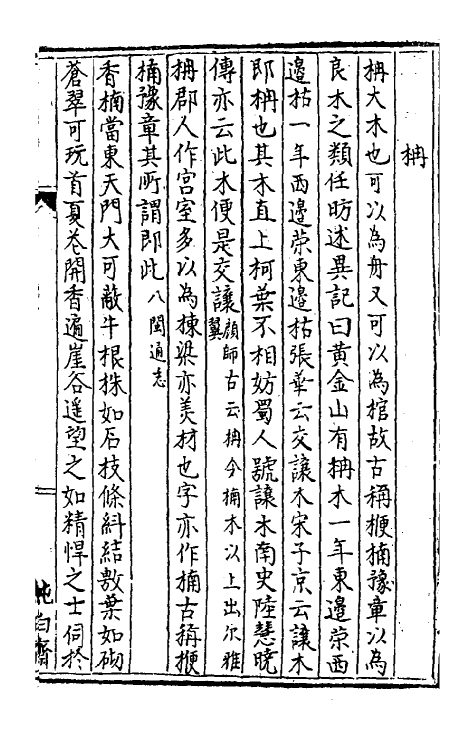 枬
枬大木也可以為舟又可以為棺故古稱楩楠豫章以為
良木之類任昉述異記曰黃金山有枬木一年東邉荣西
邉枯一年西邉荣東邉枯張華云交讓木宋子京云讓木
即枬也其木直上柯葉不相妨蜀人號讓木南史陸慧曉
傳亦云此木便是交讓顔師古云枬今楠木以上出尔雅
翼
枬郡人作宫室多以為棟梁亦美材也字亦作楠古稱楩
楠豫章其所謂即此八閩通志
香楠當東天門大可敵牛根株如石枝條糾結敷葉如砌
蒼翠可玩首夏花開香遍崖谷遥望之如精悍之士伺於
純白齋